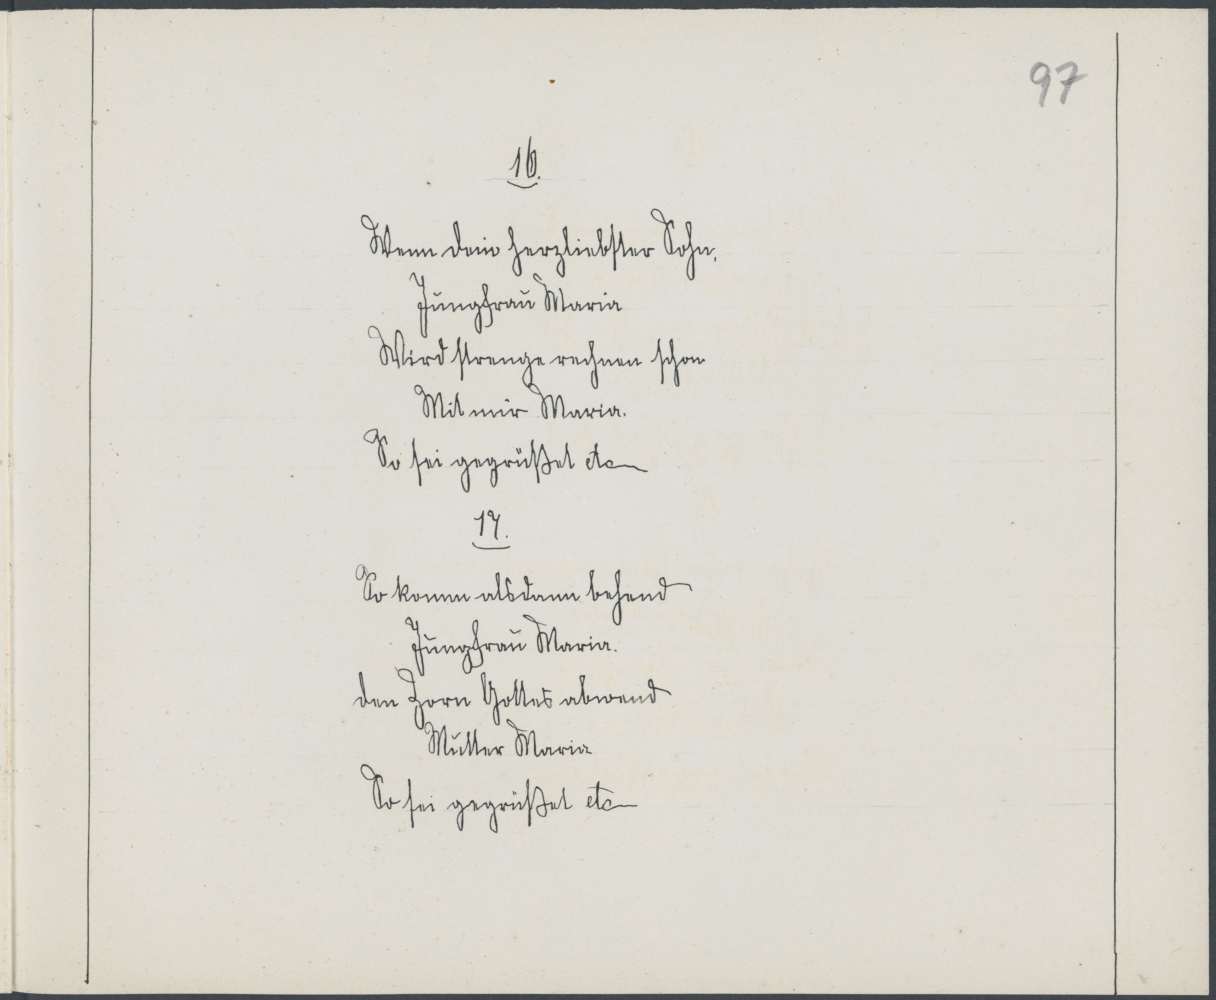 97
16.
Wenn dein herzliebster Sohn,
Jungfrau Maria
Wird strenge rechnen schon
Mit mir Maria.
So sei gegrüßet etc
17.
So komm alsdann behend
Jungfrau Maria.
den Zorn Gottes abwend
Mutter Maria
So sei gegrüßet etc